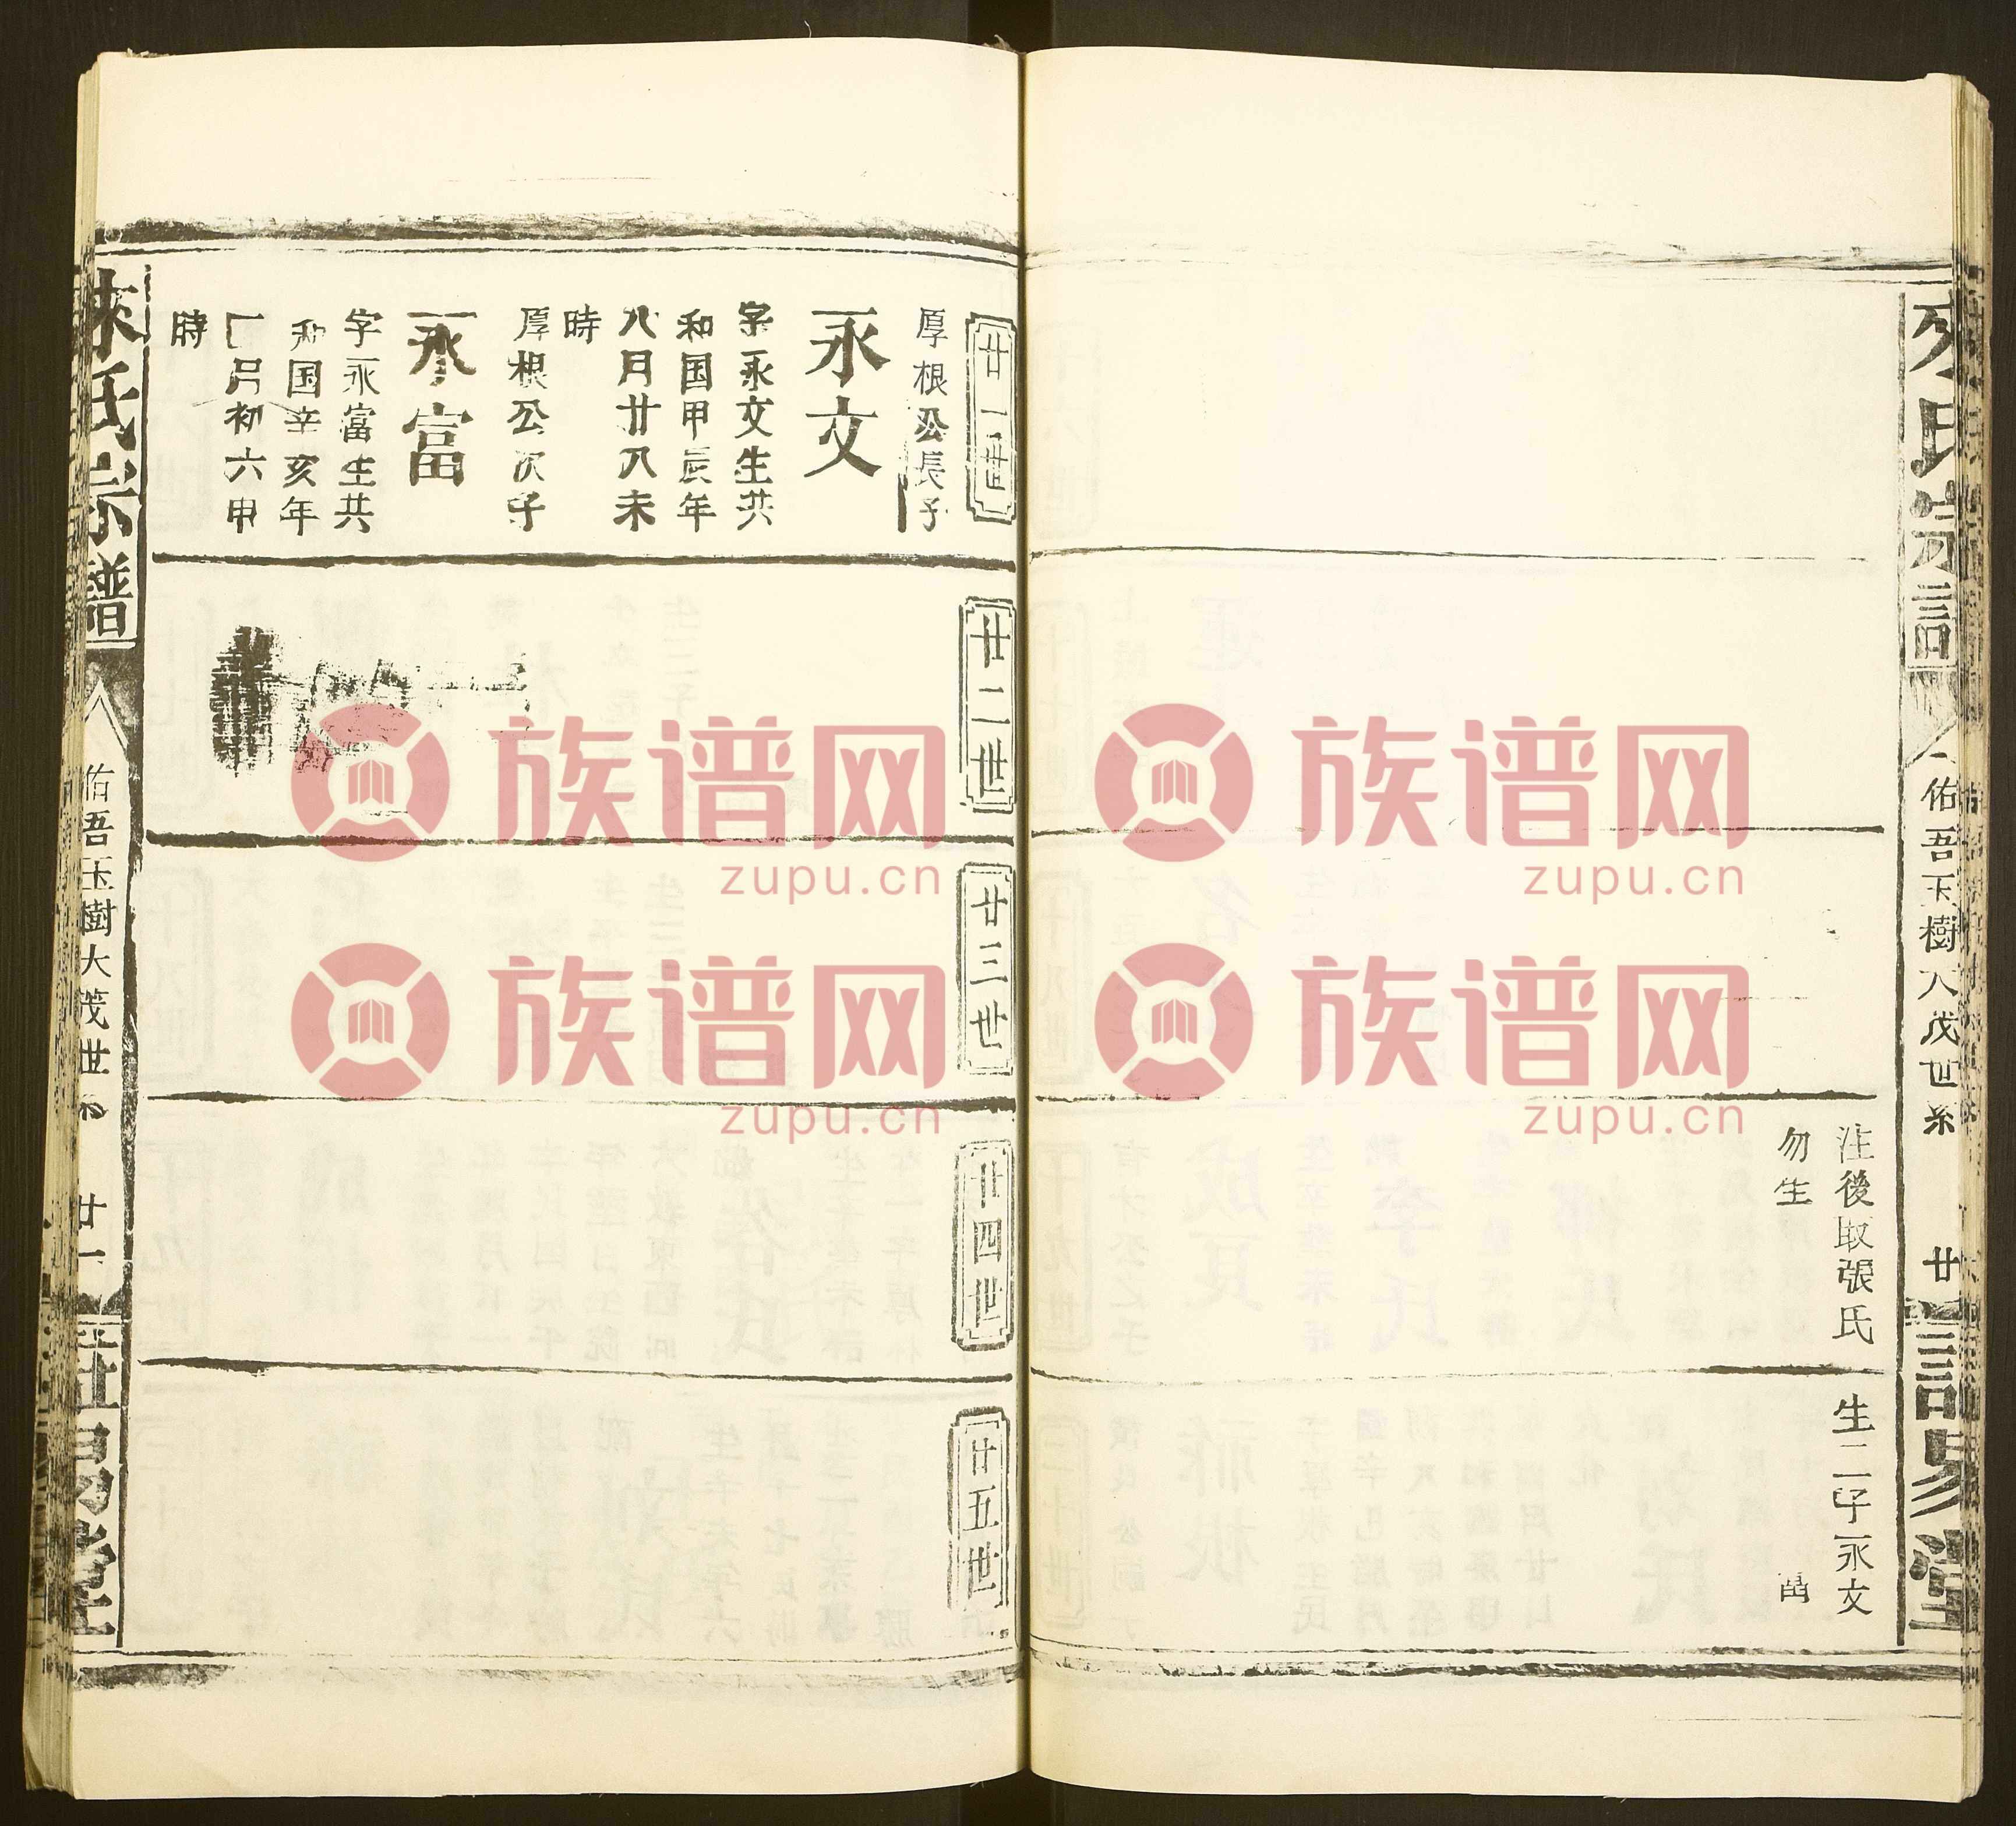 氏宗譜
佑吾玉樹大茂世系
廿
詩易堂
注後取張氏
勿生
生二子永文
廿一世
厚根公長子
永文
字永文生共
和国甲辰年
八月廿八未
時
厚根公次子
永富
字永富生共
和国辛亥年
月初六申
時
廿二世
廿三世
廿四世
廿五世
來氏宗譜
佑吾玉樹大茂世
廿一
易堂
族谱网
zupu.cn
族谱网
zupu.cn
族谱网
zupu.cn
族谱网
zupu.cn